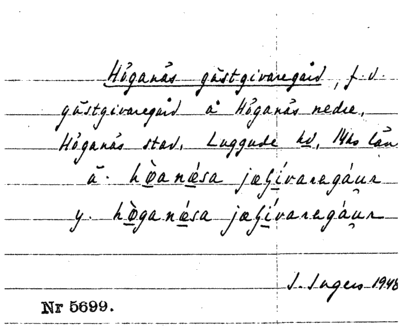 Höganäs gästgivaregård, f.d.
gästgivaregård å Höganäs nedre,
Höganäs stad, Luggude hd, Mhs län
ä. hö̀anǽsa jæʃívaregáuɹ
y. hö̀ganǽsa jæʃívaregáuɹ
S. Ingers 1948
Nr 5699.